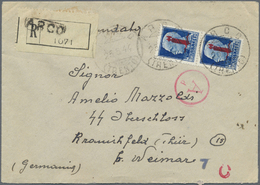 ARCO
R
1071
(TRENTO)
Signor
Amelio Mazzoldi
SS Oberschloss
Kranichfeld (Thür)
b. Weimar
(Germania)